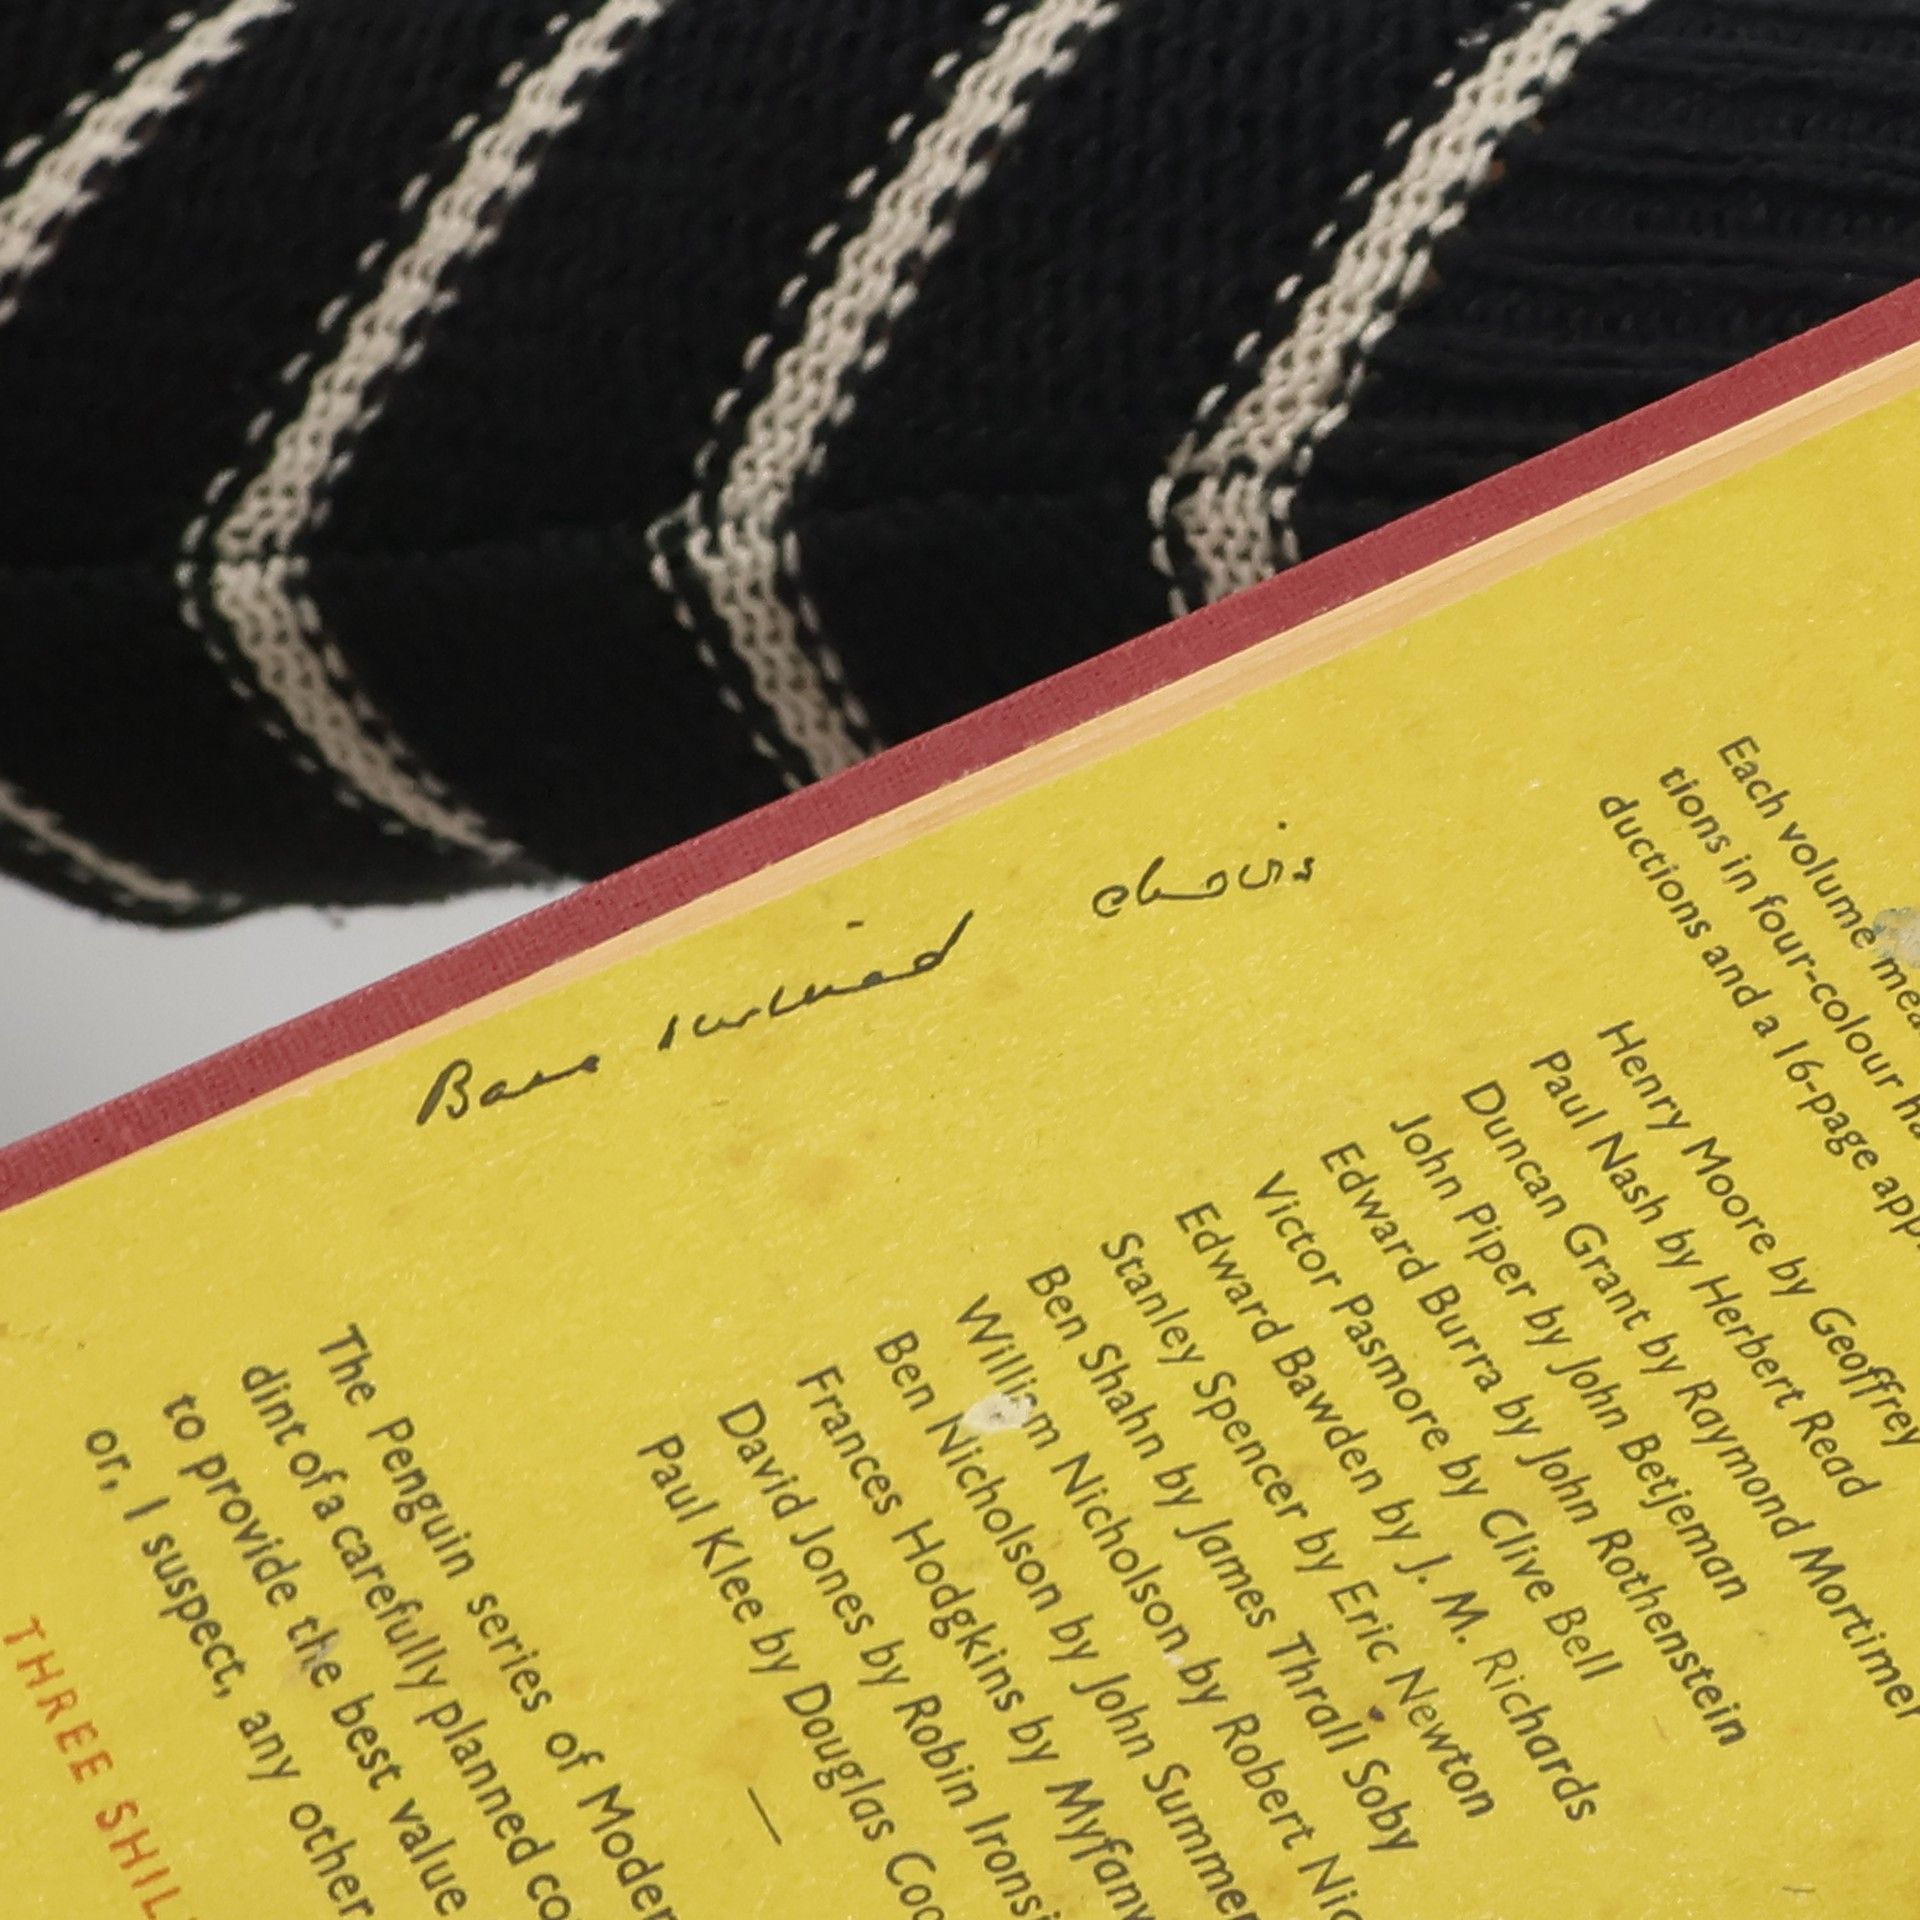 Each volume mea
tions in four-colour ha
ductions and a 16-page app
Henry Moore by Geoffrey
Paul Nash by Herbert Read
Duncan Grant by Raymond Mortimer
John Piper by John Betjeman
Edward Burra by John Rothenstein
Victor Pasmore by Clive Bell
Edward Bawden by J. M. Richards
Stanley Spencer by Eric Newton
Ben Shahn by James Thrall Soby
William Nicholson by Robert Nic
Ben Nicholson by John Summer
Frances Hodgkins by Myfanw
David Jones by Robin Ironsi
Paul Klee by Douglas Coo
The Penguin series of Moder
dint of a carefully planned co
to provide the best value
or, I suspect, any other
THREE SHIL